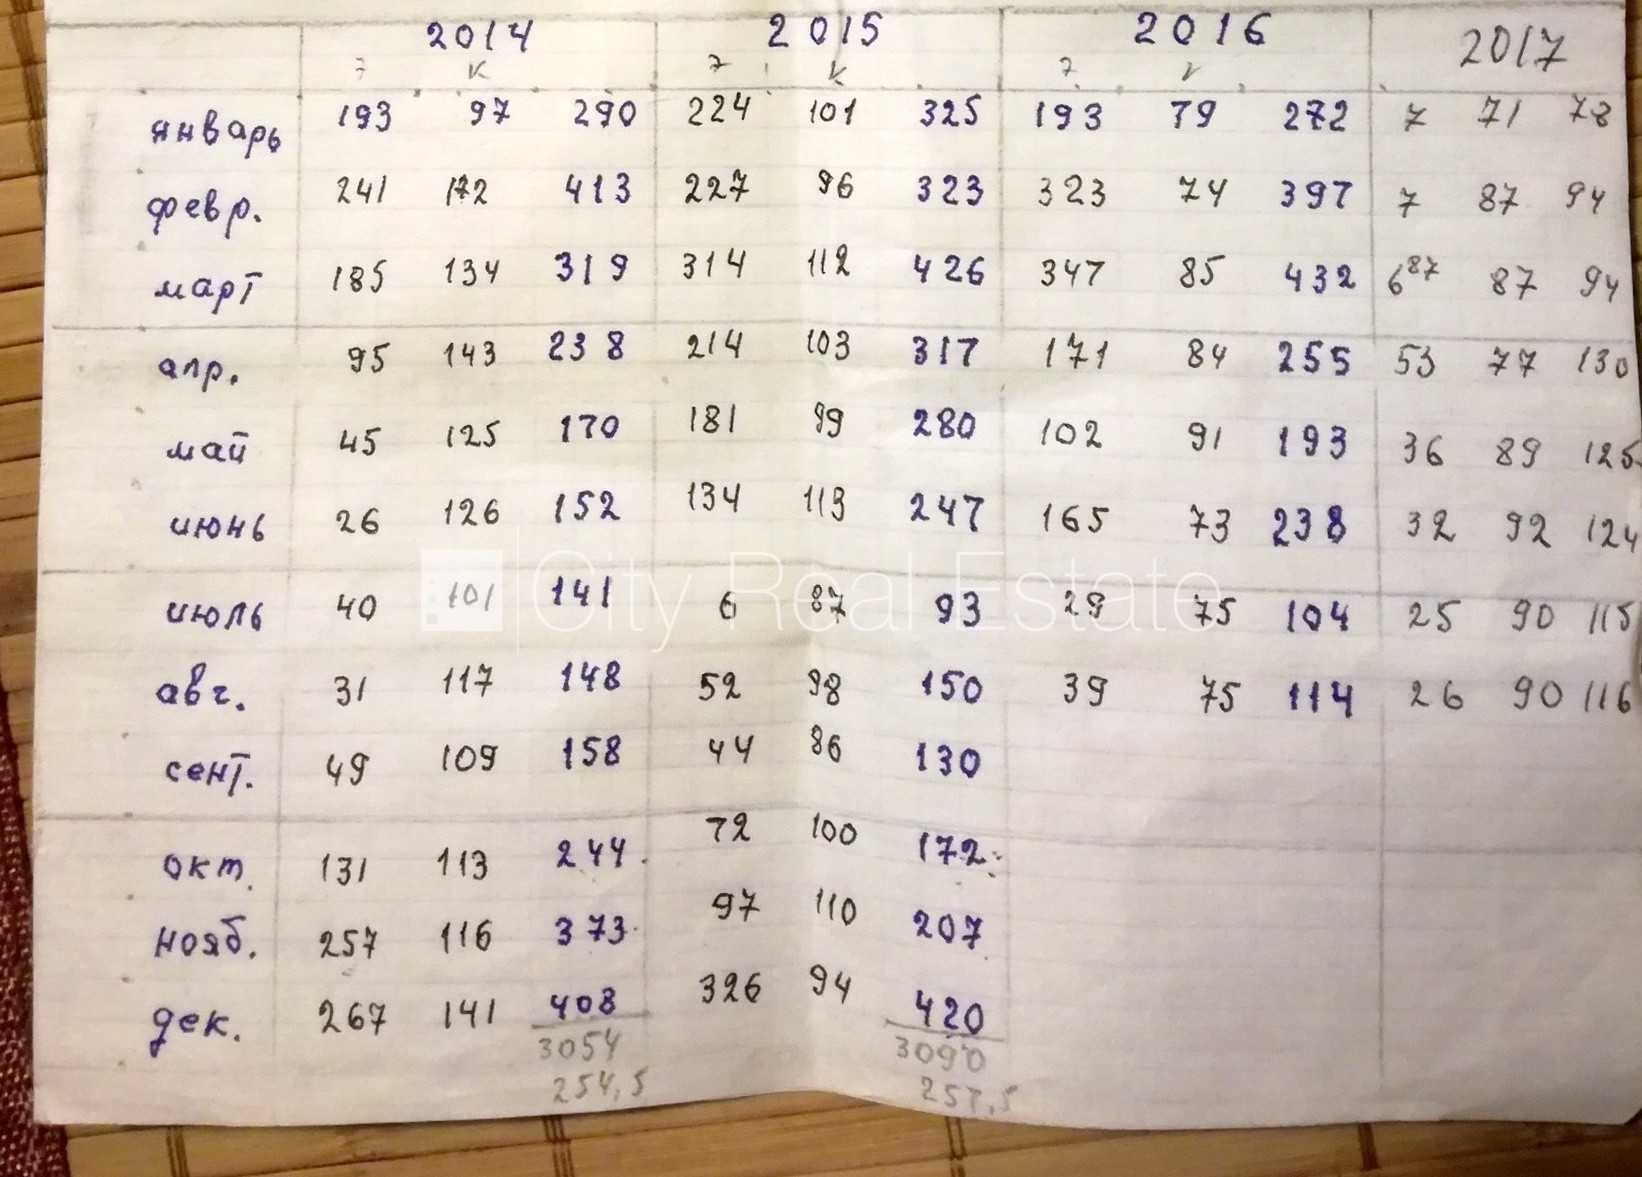 2014 2015 2016 2017
к к
январь 193 97 290 224 101 325 193 79 272 7 71 78
февр. 241 172 413 227 96 323 323 74 397 7 87 94
март 185 134 319 314 112 426 347 85 432 6 87 87 94
апр. 95 143 238 214 103 317 171 84 255 53 77 130
май 45 125 170 181 99 280 102 91 193 36 89 125
июнь 26 126 152 134 113 247 165 73 238 32 92 124
City Real Estate
июль 40 101 141 6 87 93 29 75 104 25 90 115
авг. 31 117 148 52 98 150 39 75 114 26 90 116
сент. 49 109 158 44 86 130
окт. 131 113 244 72 100 172
нояб. 257 116 373 97 110 207
дек. 267 141 408 326 94 420
3054 3090
254,5 257,5